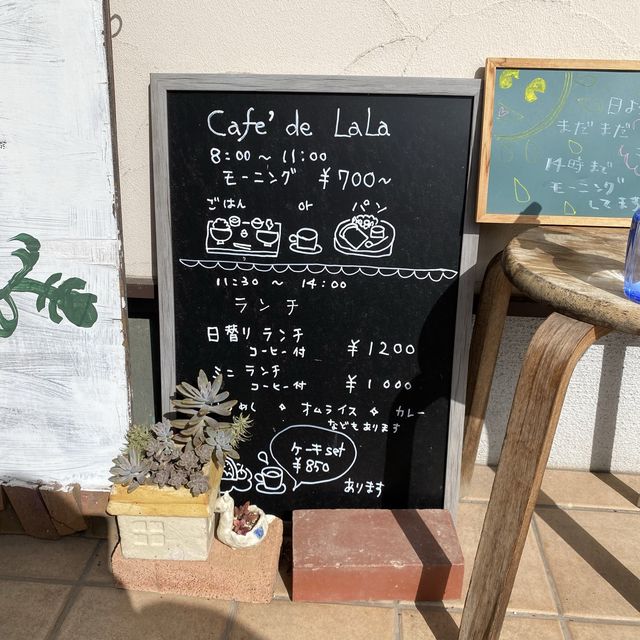 Cafe' de LaLa
8:00 ~ 11:00
モーニング ¥700~
ごはん or パン
11:30 ~ 14:00
ランチ
日替り ランチ
コーヒー付 ¥1200
ミニ ランチ
コーヒー付 ¥1000
めし ◇ オムライス ◇ カレー
などもあります
ケーキset
¥850
あります
日よ
まだまだ
14時まで
モーニング
してます